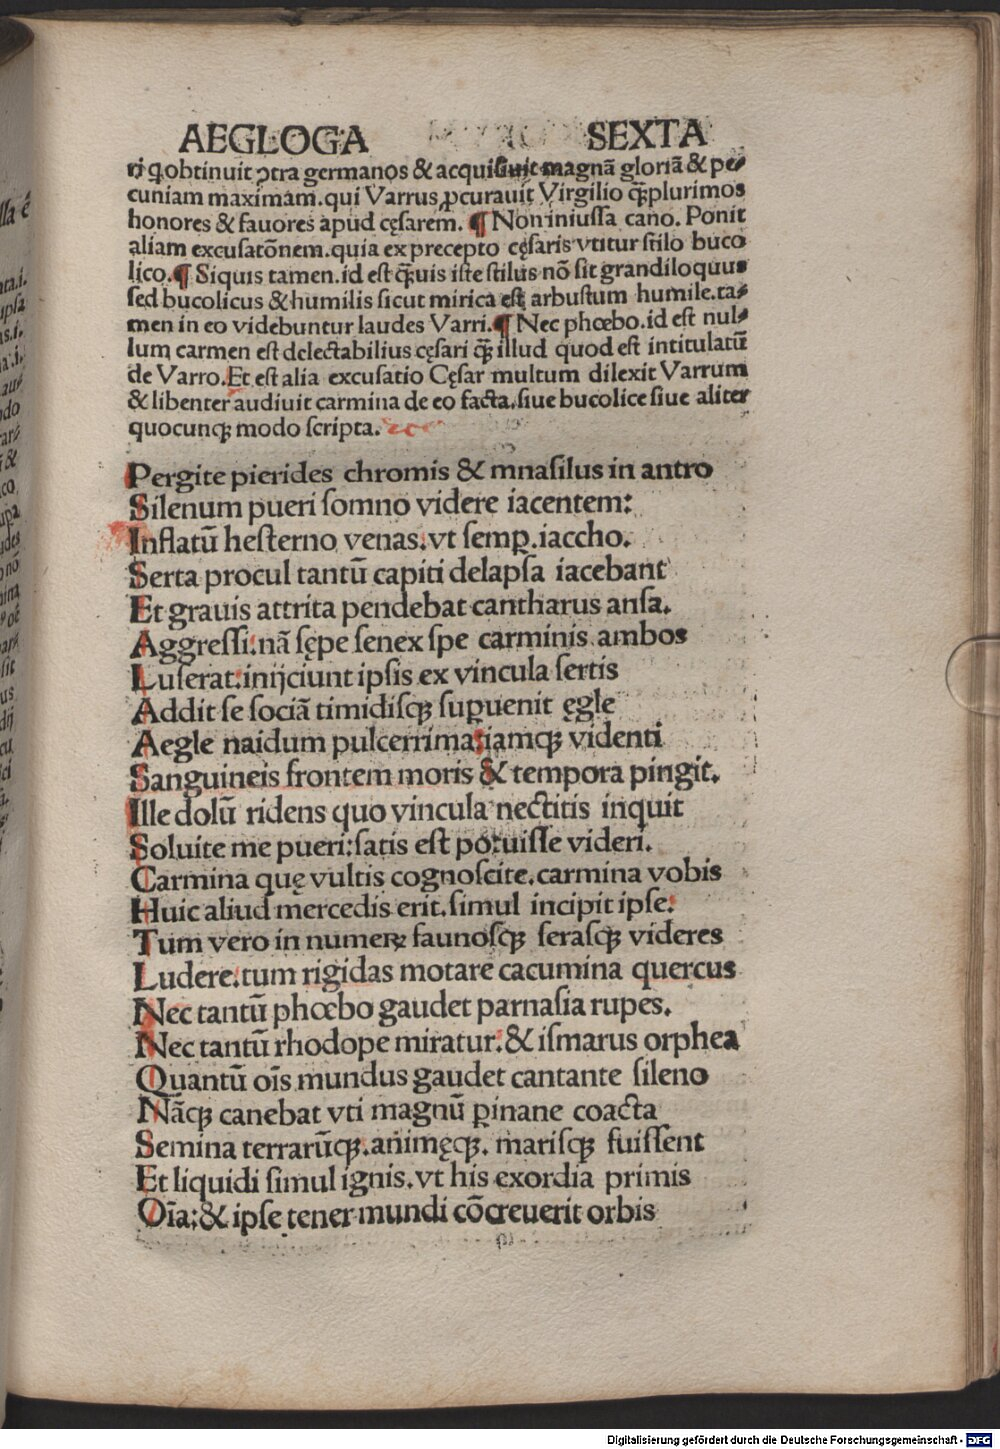 AEGLOGA SEXTA
rꝫ ꝙ obtinuit ↄtra germanos & acquisiuit magnā gloriā & pe⸗
cuniam maximam. qui Varrus ꝓcurauit Virgilio qꝫ̄plurimos
honores & fauores apud cęsarem. ¶ Non iniussa cano. Ponit
aliam excusatōnem. quia ex precepto cęsaris vtitur stilo buco
lico. ¶ Siquis tamen. id est qꝫ̄uis iste stilus nō sit grandiloquus
sed bucolicus & humilis sicut mirica est arbustum humile. ta⸗
men in eo videbuntur laudes Varri. ¶ Nec phœbo. id est nul⸗
lum carmen est delectabilius cęsari qꝫ̄ illud quod est intitulatū
de Varro. Et est alia excusatio Cęsar multum dilexit Varrum
& libenter audiuit carmina de eo facta. siue bucolice siue aliter
quocunqꝫ modo scripta.
Pergite pierides chromis & mnasilus in antro
Silenum pueri somno videre iacentem:
Inflatū hesterno venas. vt semꝑ. iaccho.
Serta procul tantū capiti delapsa iacebant
Et grauis attrita pendebat cantharus ansa.
Aggressi: nā sępe senex spe carminis ambos
Luserat: inijciunt ipsis ex vincula sertis
Addit se sociā timidisqꝫ suꝑuenit ęgle
Aegle naidum pulcerrima: iamqꝫ videnti
Sanguineis frontem moris & tempora pingit.
Ille dolū ridens quo vincula nectitis inquit
Soluite me pueri: satis est potuisse videri.
Carmina quę vultis cognoscite. carmina vobis
Huic aliud mercedis erit. simul incipit ipse:
Tum vero in numeꝝ faunosqꝫ ferasqꝫ videres
Ludere: tum rigidas motare cacumina quercus
Nec tantū phœbo gaudet parnasia rupes.
Nec tantū rhodope miratur: & ismarus orphea
Quantū oīs mundus gaudet cantante sileno
Nāqꝫ canebat vti magnū ꝑ inane coacta
Semina terrarūqꝫ. animęqꝫ. marisqꝫ fuissent
Et liquidi simul ignis. vt his exordia primis
Oīa: & ipse tener mundi cōcreuerit orbis
Digitalisierung gefördert durch die Deutsche Forschungsgemeinschaft - DFG